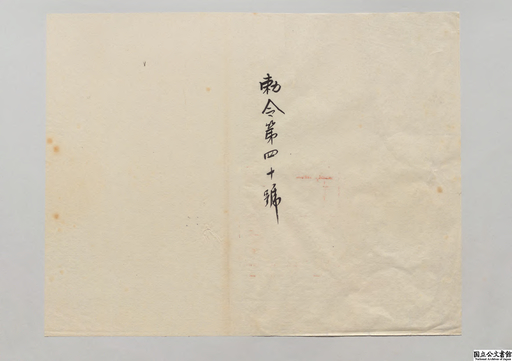 勅令第四十號
国立公文書館
National Archives of Japan